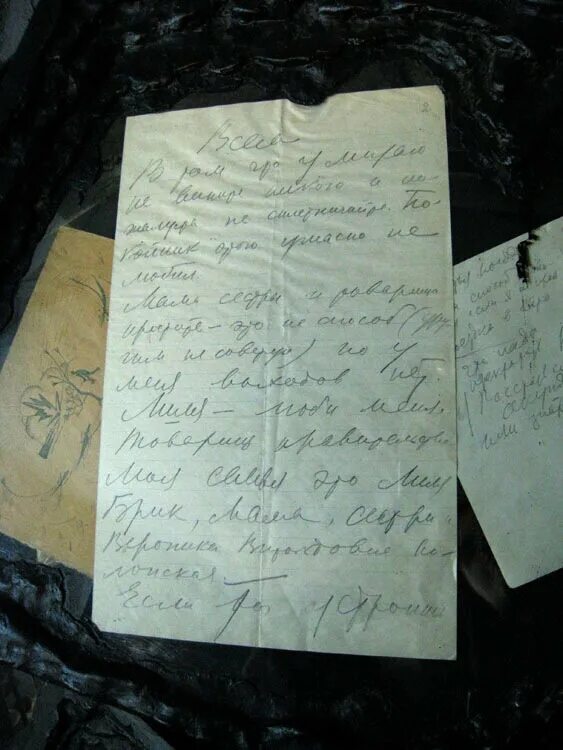 2
Всем
В том что умираю
не вините никого и по-
жалуйста не сплетничайте. По-
койник этого ужасно не
любил.
Мама сестры и товарищи
простите – это не способ (дру-
гим не советую) но у
меня выходов нет.
Лиля – люби меня.
Товарищ правительство
моя семья это Лиля
Брик, мама, сестры и
Вероника Витольдовна По-
лонская
Если ты устроишь
способ